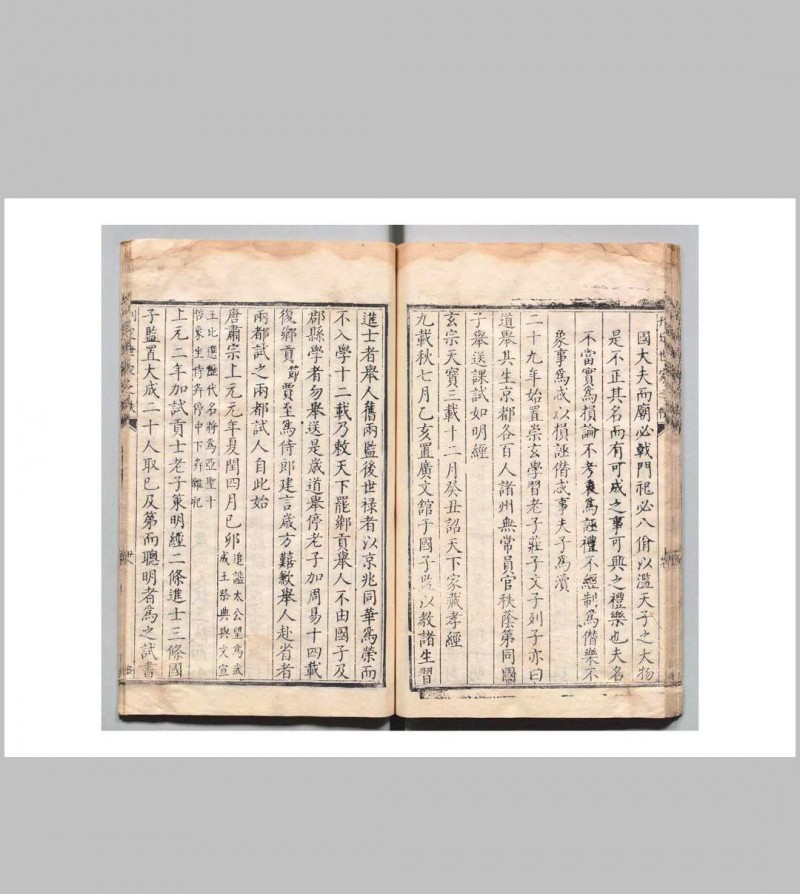 國大夫而廟必戟門祀必八佾以濫天子之大物
是不正其名而有可成之事可興之禮樂也夫名
不當實爲損論不考衷爲誣禮不經制爲僭樂不
象事爲忒以損誣僭忒事夫子爲瀆
二十九年始置崇玄學習老子莊子文子列子亦曰
道舉其生京都各百人諸州無常員官秩蔭第同國
子舉送課試如明經
玄宗天寶三載十二月癸丑詔天下家藏孝經
九載秋七月乙亥置廣文館于國子監以教諸生習
進士者舉人舊兩監後世祿者以京兆同華爲榮而
不入學十二載乃敕天下罷鄉貢舉人不由國子及
郡縣學者勿舉送是歲道舉停老子加周易十四載
復鄉貢 節 賈至爲侍郎建言歲方艱歉舉人赴省者
兩都試之兩都試人自此始
唐肅宗上元元年夏閏四月己卯 追謚太公望爲武
成王祭典與文宣
王比選歷代名將爲亞聖十
哲象坐侍弁停中下弁雜祀
上元二年加試貢士老子策明經二條進士三條國
子監置大成二十人取已及第而聰明者爲之試書
世家之